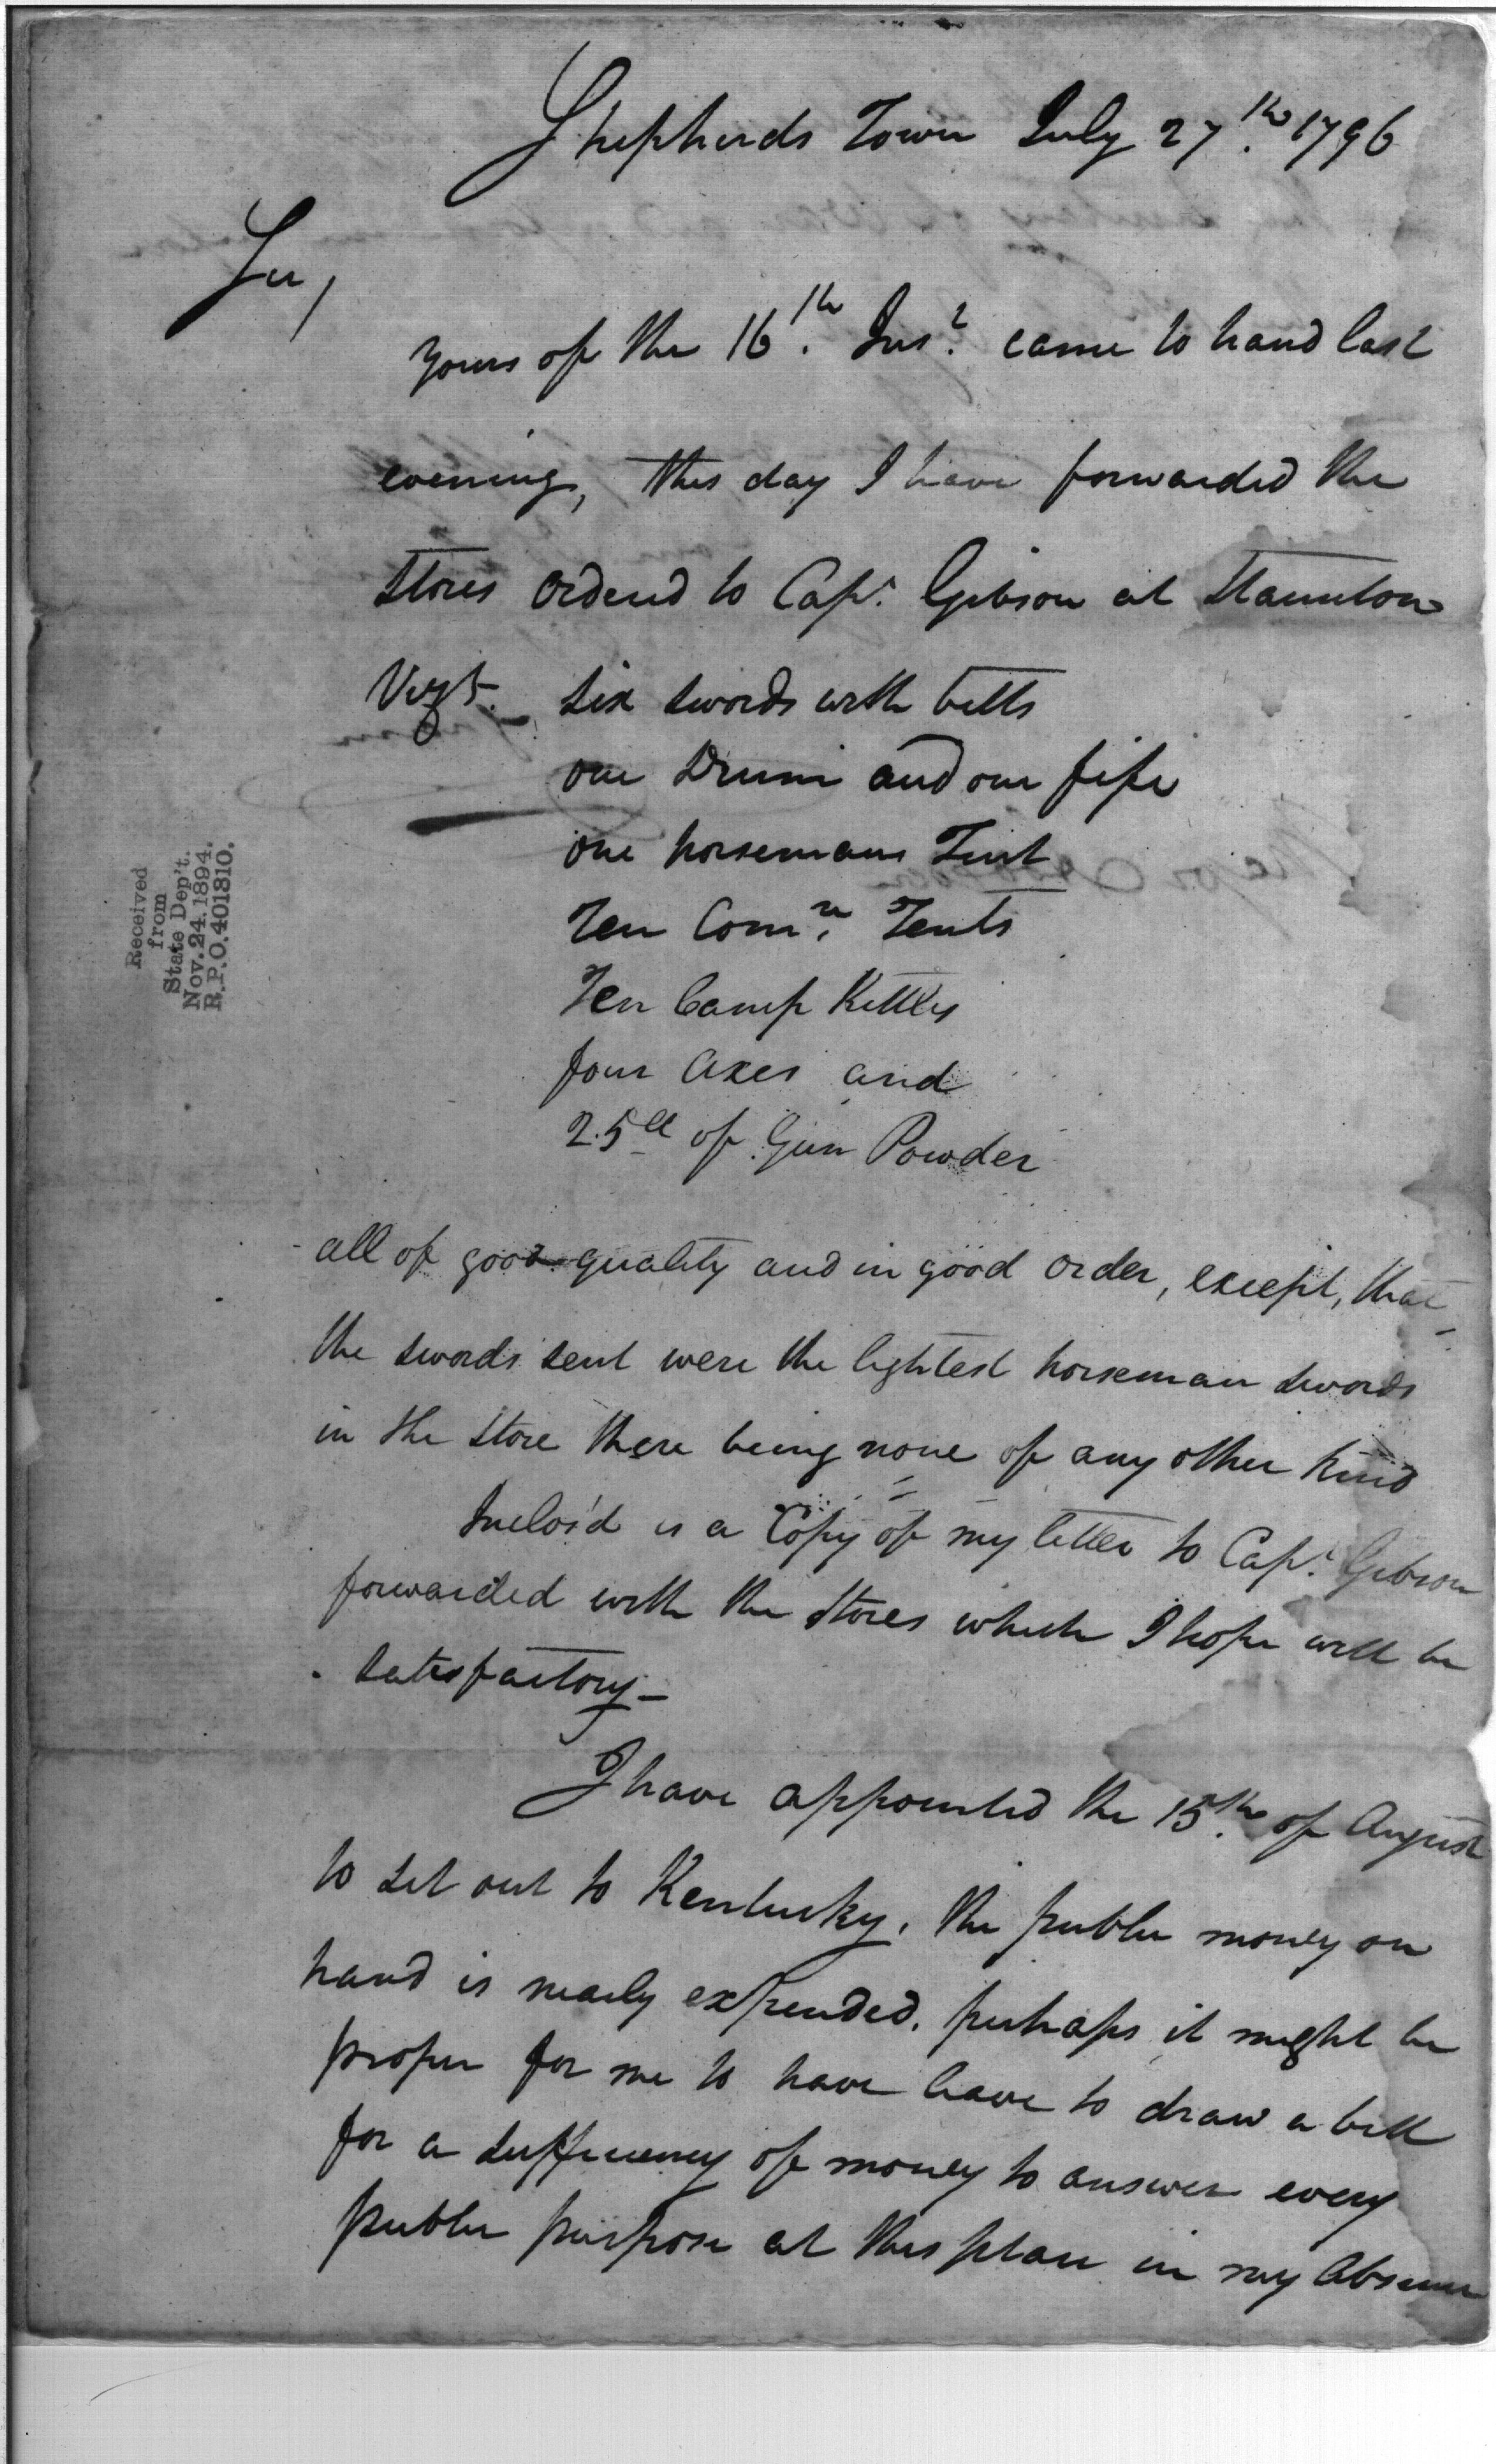 Shepherds Town July 27th. 1796
Sir,
yours of the 16th. Inst. came to hand last
evening, this day I have forwarded the
stores ordered to Capt. Gibson at Staunton
Vizt. six swords with belts
one Drum and one fife
one horsemans Tent
Ten Comn. Tents
Ten Camp Kettles
four axes and
25 ll of Gun Powder
all of good quality and in good order, except, that
the swords sent were the lightest horseman swords
in the store there being none of any other kind
Inclos'd is a Copy of my letter to Capt. Gibson
forwarded with the stores which I hope will be
satisfactory—
I have appointed the 15th. of August
to set out to Kentucky, the public money on
hand is nearly expended. perhaps it might be
proper for me to have leave to draw a bill
for a sufficiency of money to answer every
public purpose at this place in my absence
Received
from
State Dep't.
Nov. 24. 1894.
R.P.O. 401810.